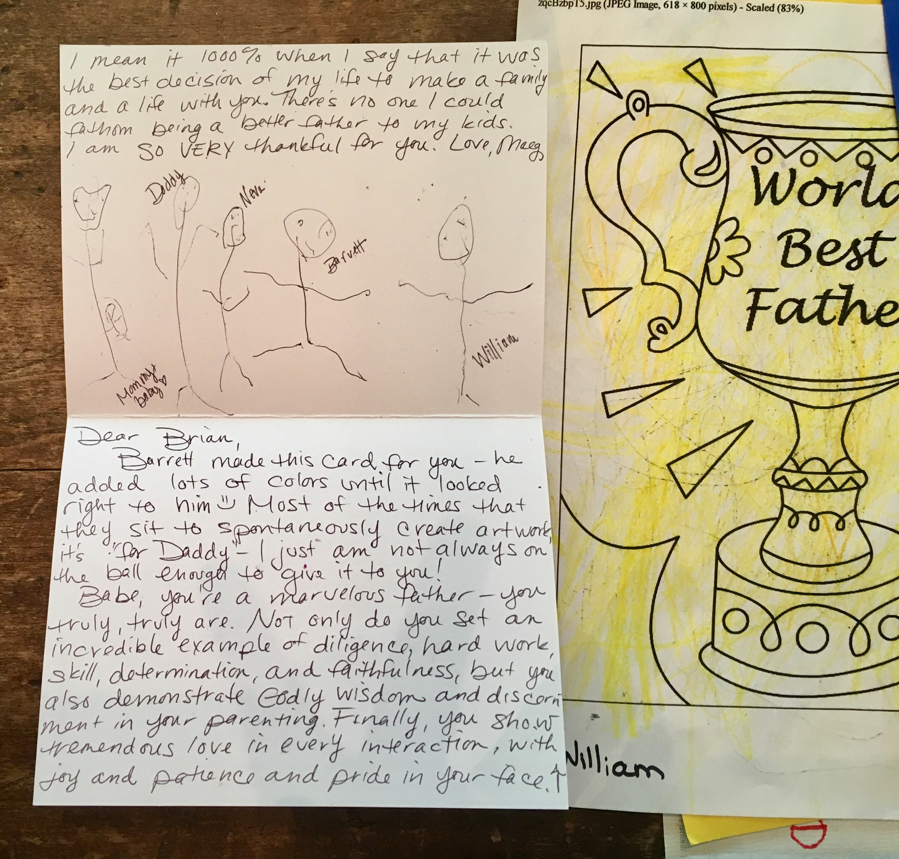 zqcBzbp15.jpg (JPEG Image, 618 × 800 pixels) - Scaled (83%)
I mean it 1000% when I say that it was
the best decision of my life to make a family
and a life with you. There's no one I could
fathom being a better father to my kids.
I am SO VERY thankful for you. Love, Maeg
Daddy
Nora
Barrett
William
Mommy +
baby ♡
Dear Brian,
Barrett made this card for you - he
added lots of colors until it looked
right to him☺ Most of the times that
they sit to spontaneously create artwork,
it's "for Daddy" - I just am not always on
the ball enough to give it to you!
Babe, you're a marvelous father - you
truly, truly are. Not only do you set an
incredible example of diligence, hard work,
skill, determination, and faithfulness, but you
also demonstrate Godly wisdom and discern
ment in your parenting. Finally, you show
tremendous love in every interaction, with
joy and patience and pride in your face.↑
World
Best
Fathe
William